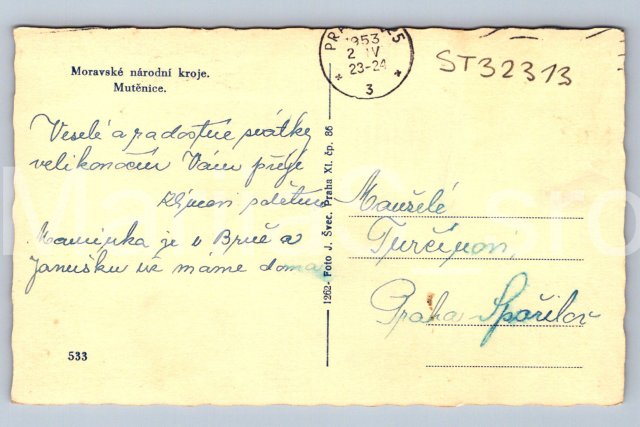 Moravské národní kroje.
Mutěnice.
PRAHA 25
1953
2 IV
23-24
* 3 *
ST32313
Veselé a radostné svátky
velikonoční Vám přeje
s dětmi
Maminka je v Brně a
Janušku už máme doma
533
1262- Foto J. Švec, Praha XI. čp. 86
Manželé
Turčínovi
Praha Spořilov